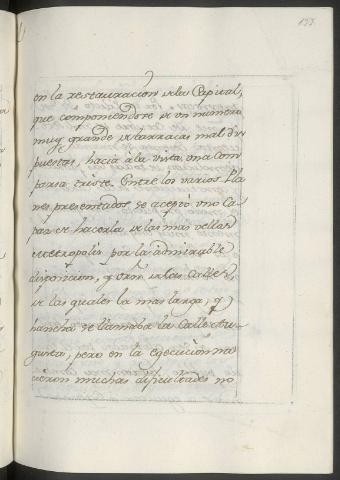 133.
en la restauracion de la Capital,
que componiendose de un numero
muy grande de barracas mal dis
puestas, hacia à la vista una com
parsa triste. Entre los varios Pla
nes presentados, se aceptó uno ca
paz de hacerla de las mas bellas
Metropolis por la admirable
disposicion, y orn de las Calles,
de las quales la mas larga, y
hancha se llamaba la Calle Au
gusta, pero en la egecucion na
cieron muchas dificultades no